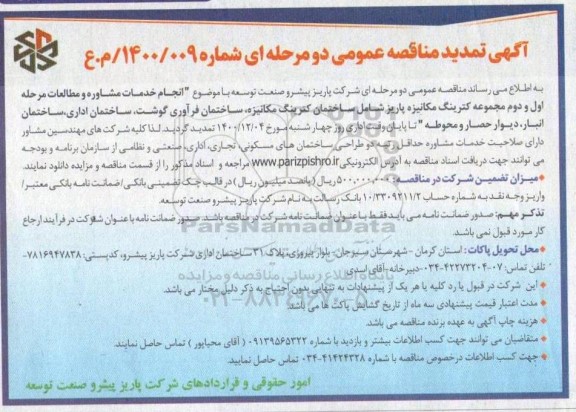 آگهی تمدید مناقصه عمومی دو مرحله ای شماره ۱۴۰۰/۰۰۹/م.ع
به اطلاع می رساند مناقصه عمومی دو مرحله ای شرکت پاریز پیشرو صنعت توسعه با موضوع "انجام خدمات مشاوره و مطالعات مرحله
اول و دوم مجموعه کترینگ مکانیزه پاریز شامل ساختمان کترینگ مکانیزه، ساختمان فرآوری گوشت، ساختمان اداری، ساختمان
انبار، دیوار حصار و محوطه" تا پایان وقت اداری روز چهارشنبه مورخ ۱۴۰۰/۱۲/۰۴ تمدید گردید. لذا کلیه شرکت های مهندسین مشاور
دارای صلاحیت خدمات مشاوره حداقل رتبه دو طراحی ساختمان های مسکونی، تجاری، اداری، صنعتی و نظامی از سازمان برنامه و بودجه
می توانند جهت دریافت اسناد مناقصه به آدرس الکترونیکی www.parizpishro.ir مراجعه و اسناد مذکور را از قسمت مناقصه و مزایده دانلود نمایند.
میزان تضمین شرکت در مناقصه: ۵۰۰,۰۰۰,۰۰۰ ریال (پانصد میلیون ریال) در قالب چک تضمینی بانکی/ضمانت نامه بانکی معتبر/
واریز وجه نقد به شماره حساب ۱۰/۲۳۰۹۲۱۱/۲ بانک رسالت به نام شرکت پاریز پیشرو صنعت توسعه.
تذکر مهم: صدور ضمانت نامه می باید فقط با عنوان ضمانت نامه شرکت در مناقصه باشد. صدور ضمانت نامه با عنوان شرکت در فرآیند ارجاع
کار مورد قبول نمی باشد.
محل تحویل پاکات: استان کرمان - شهرستان سیرجان - بلوار پیروزی، پلاک ۳۱ ساختمان اداری شرکت پاریز پیشرو، کدپستی: ۷۸۱۶۹۴۷۸۳۸-
تلفن تماس: ۰۷-۰۳۴-۴۲۲۷۳۲۰۴ - دبیرخانه - آقای اسدی
این شرکت در قبول یا رد کلیه یا هر یک از پیشنهادات به تنهایی بدون احتیاج به ذکر دلیل مختار می باشد.
مدت اعتبار قیمت پیشنهادی سه ماه از تاریخ گشایش پاکت ها می باشد.
هزینه چاپ آگهی به عهده برنده مناقصه می باشد.
متقاضیان می توانند جهت کسب اطلاعات بیشتر و بازدید با شماره ۰۹۱۳۹۵۶۵۳۲۲ (آقای محیاپور) تماس حاصل نمایند.
جهت کسب اطلاعات درخصوص مناقصه با شماره ۰۳۴-۴۱۴۲۴۳۲۸ تماس حاصل نمایید.
امور حقوقی و قراردادهای شرکت پاریز پیشرو صنعت توسعه
ParsNamadData
پایگاه اطلاع رسانی مناقصه و مزایده